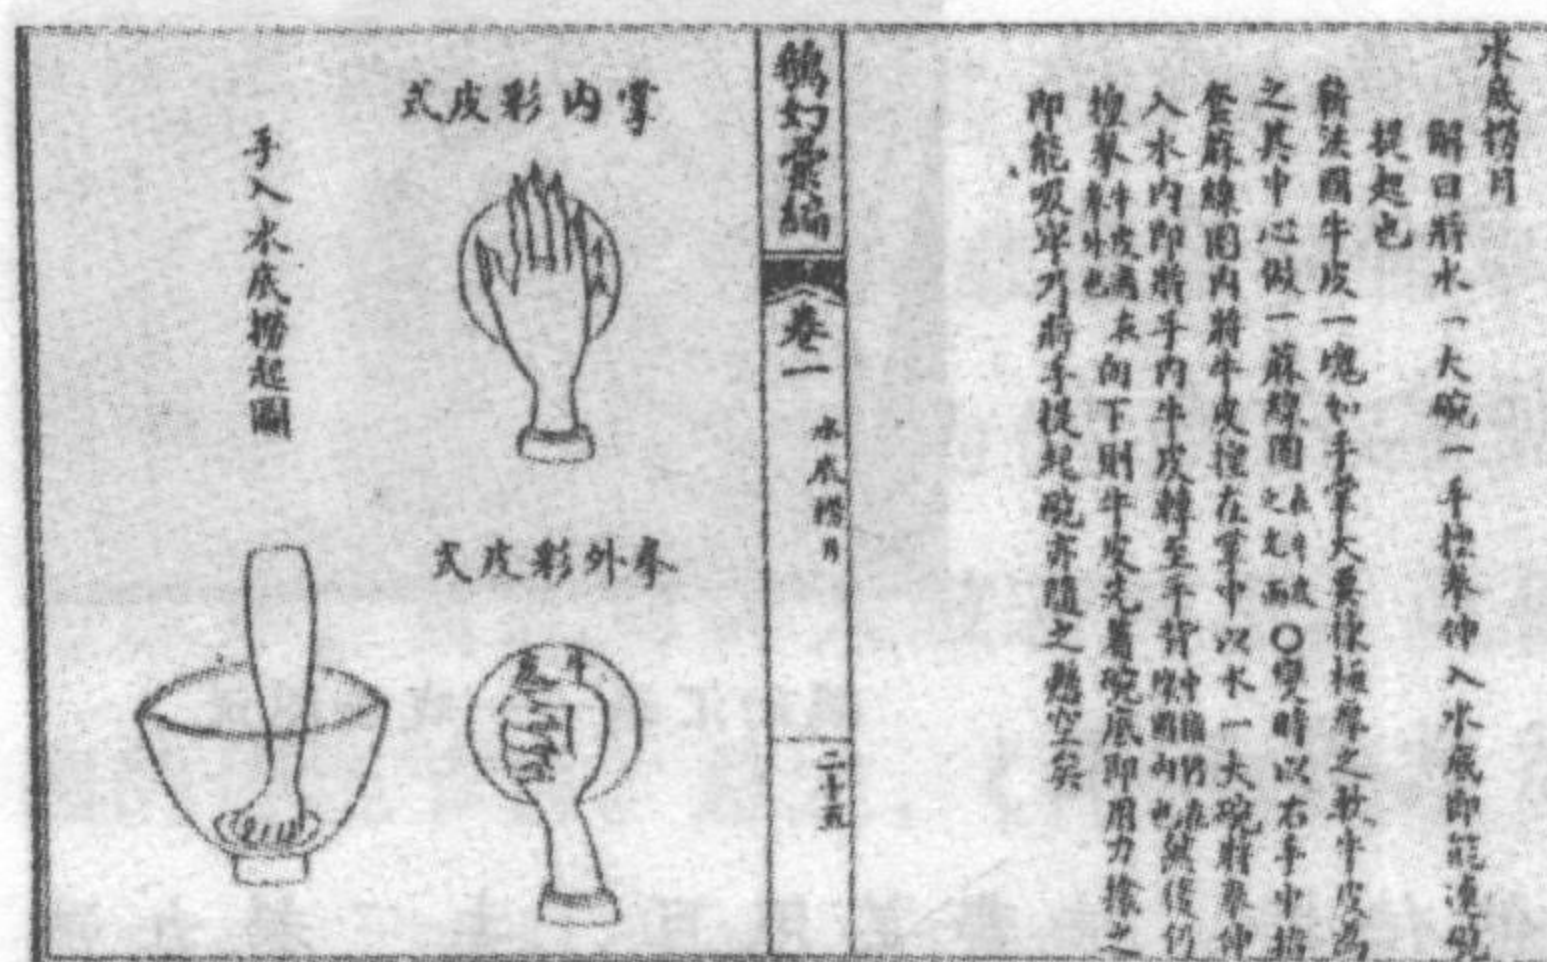 水底撈月
解曰將水一大碗一手捏拳伸入水底即能連碗
提起也
新法圓牛皮一塊如手掌大異樣極厚之軟牛皮為
之其中心做一蔴線圈在牛皮之光面〇變時以右手中指
套蔴線圈內將牛皮捏在掌中以水一大碗將拳伸
入水內即將手內牛皮轉至手背中指仍在線圈內也然後仍
捏拳牛皮在拳外也滿底向下則牛皮光着碗底即用力揿之
即能吸牢乃將手提起碗亦隨之懸空矣
鵝幻彙編
卷一
水底撈月
二十五
掌內彩皮式
拳外彩皮式
牛皮
手入水底撈起圖